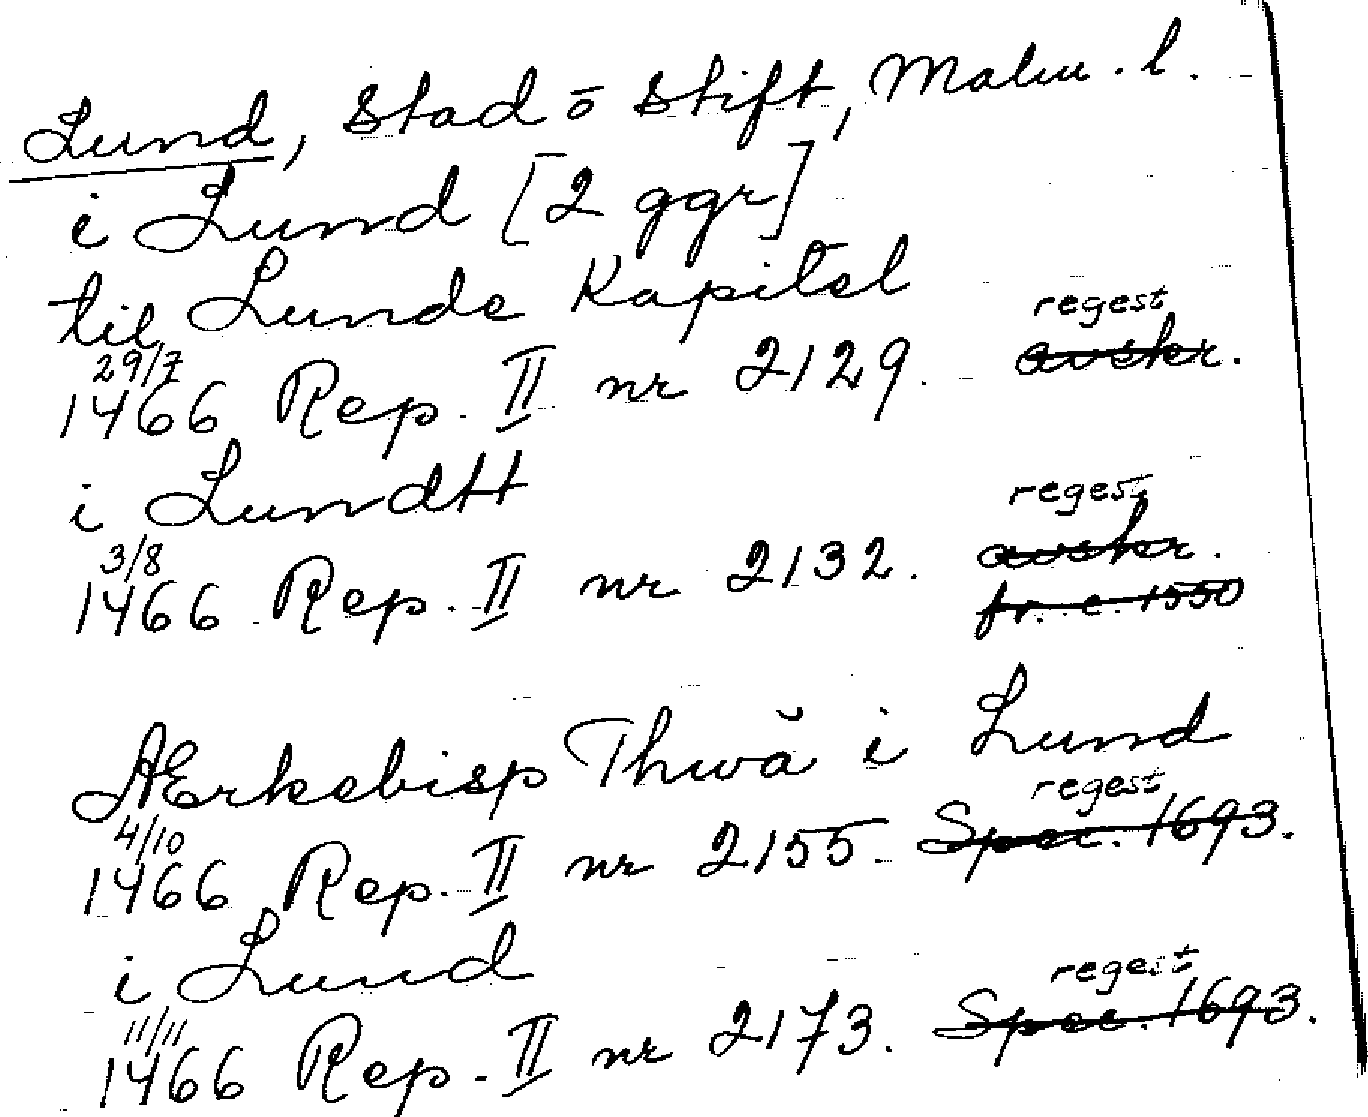 Lund, Stad ō Stift, Malm. l.
i Lund [2 ggr]
til Lunde Kapitel
regest
29/7
1466 Rep. II nr 2129. avskr.
i Lundtt
regest
3/8
1466 Rep. II nr 2132. avskr.
fr. c. 1550
Ærkebisp Thwă i Lund
regest
4/10
1466 Rep. II nr 2155 Spec. 1693.
i Lund
regest
11/11
1466 Rep. II nr 2173. Spec. 1693.